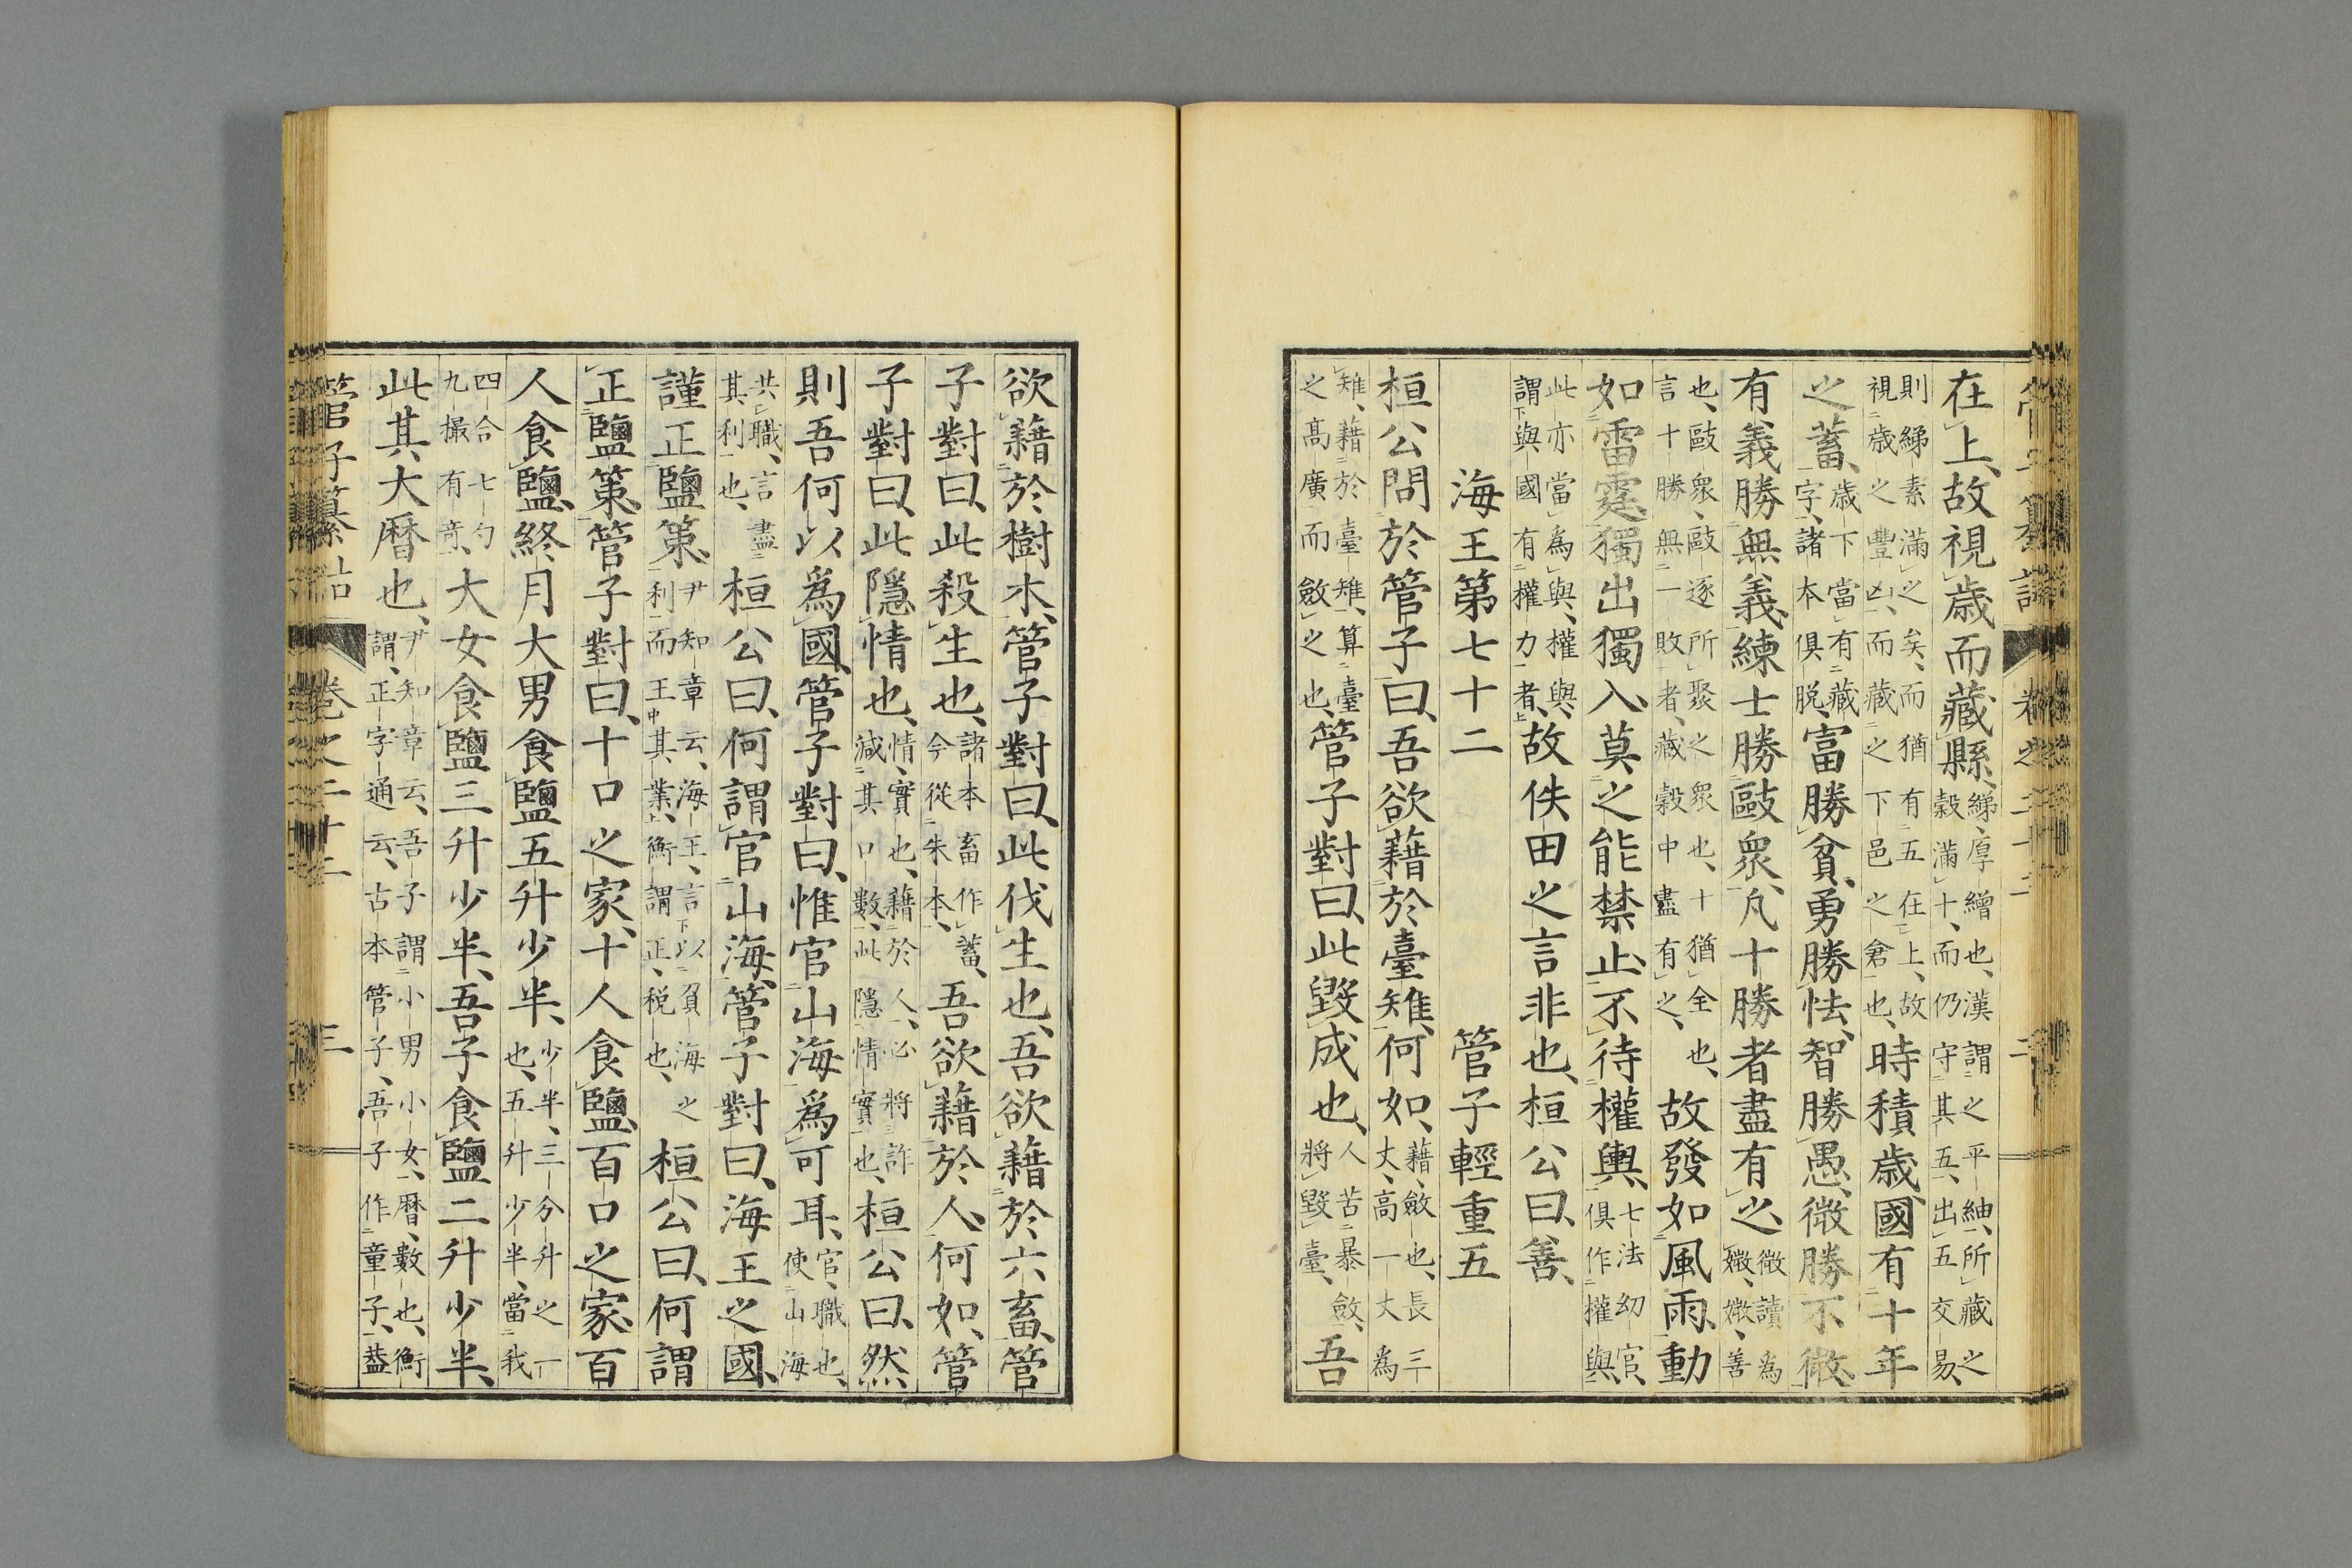 在上、故視歳而藏縣、綈、厚繒也、漢謂之平紬、所藏之穀滿十、而仍守其五、出五交易、
則綈素滿之矣、而猶有五在上、故視歳之豐凶、而藏之下邑之倉也、時積歳、國有十年
之蓄、歳下當有藏字、諸本俱脱、富勝貧、勇勝怯、智勝愚、微勝不微、
有義勝無義、練士勝敺衆、凡十勝者盡有之、微讀為媺、媺、善
也、敺衆、敺逐所聚之衆也、十猶全也、言十勝無一敗者、藏穀中盡有之、故發如風雨、動
如雷霆、獨出獨入、莫之能禁止、不待權輿、七法幼官、俱作權與、
此亦當為與、權與、謂與國有權力者、故佚田之言非也、桓公曰、善、
海王第七十二 管子輕重五
桓公問於管子曰、吾欲藉於臺雉、何如、藉、斂也、長三丈、高一丈為
雉、藉於臺雉、算臺之高廣而斂之也、管子對曰、此毀成也、人苦暴斂、將毀臺、吾
欲藉於樹木、管子對曰、此伐生也、吾欲藉於六畜、管
子對曰、此殺生也、諸本畜作蓄、今從朱本、吾欲藉於人、何如、管
子對曰、此隱情也、情、實也、藉於人、必將詐減其口數、此隱情實也、桓公曰、然
則吾何以爲國、管子對曰、惟官山海爲可耳、官、職也、使山海
共職、言盡其利也、桓公曰、何謂官山海、管子對曰、海王之國、
謹正鹽策、尹知章云、海王、言以負海之利而王其業、衡謂正、税也、桓公曰、何謂
正鹽策、管子對曰、十口之家、十人食鹽、百口之家、百
人食鹽、終月大男食鹽五升少半、少半、三分升之一也、五升少半、當我
四合七勺九撮有竒、大女食鹽三升少半、吾子食鹽二升少半、
此其大暦也、尹知章云、吾子謂小男小女、暦、數也、衡謂、正字通云、古本管子、吾子作童子、葢
管子纂詁 卷之二十二 三